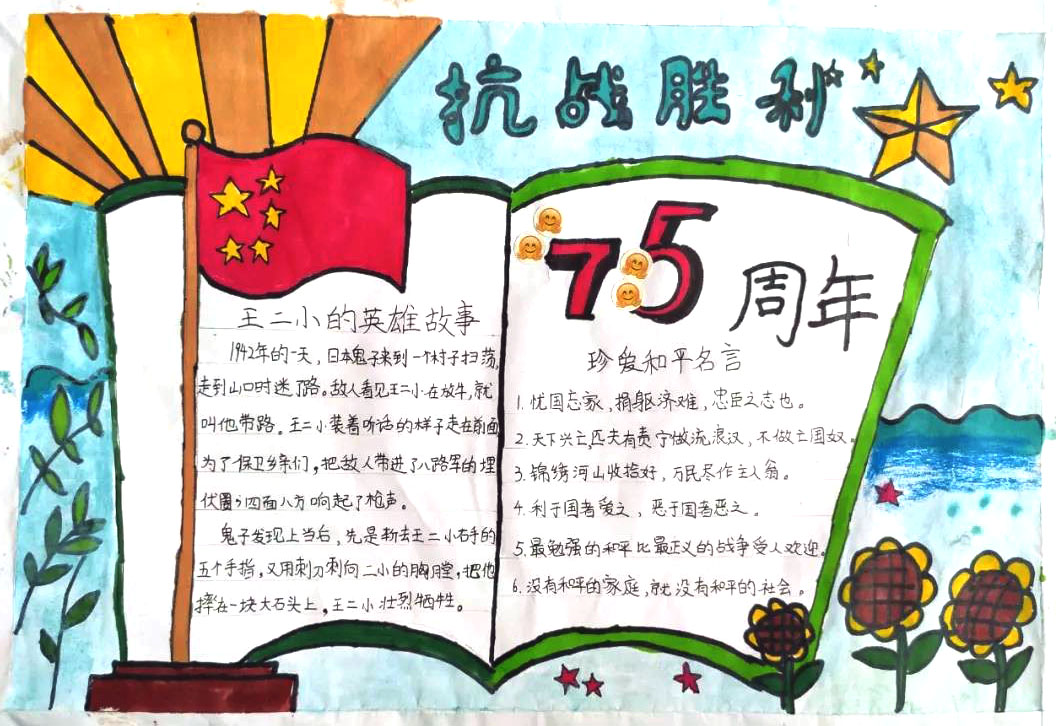 抗战胜利
75周年
王二小的英雄故事
1942年的一天，日本鬼子来到一个村子扫荡，
走到山口时迷了路。敌人看见王二小在放牛，就
叫他带路。王二小装着听话的样子走在前面
为了保卫乡亲们，把敌人带进了八路军的埋
伏圈，四面八方响起了枪声。
鬼子发现上当后，先是斩去王二小右手的
五个手指，又用刺刀刺向二小的胸膛，把他
摔在一块大石头上，王二小壮烈牺牲。
珍爱和平名言
1. 忧国忘家，捐躯济难，忠臣之志也。
2. 天下兴亡，匹夫有责宁做流浪汉，不做亡国奴。
3. 锦绣河山收拾好，万民尽作主人翁。
4. 利于国者爱之，恶于国者恶之。
5. 最勉强的和平比最正义的战争受人欢迎。
6. 没有和平的家庭，就没有和平的社会。